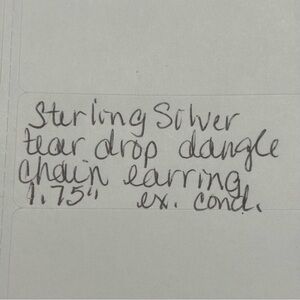 Sterling Silver
tear drop dangle
chain earring
1.75" ex. cond.